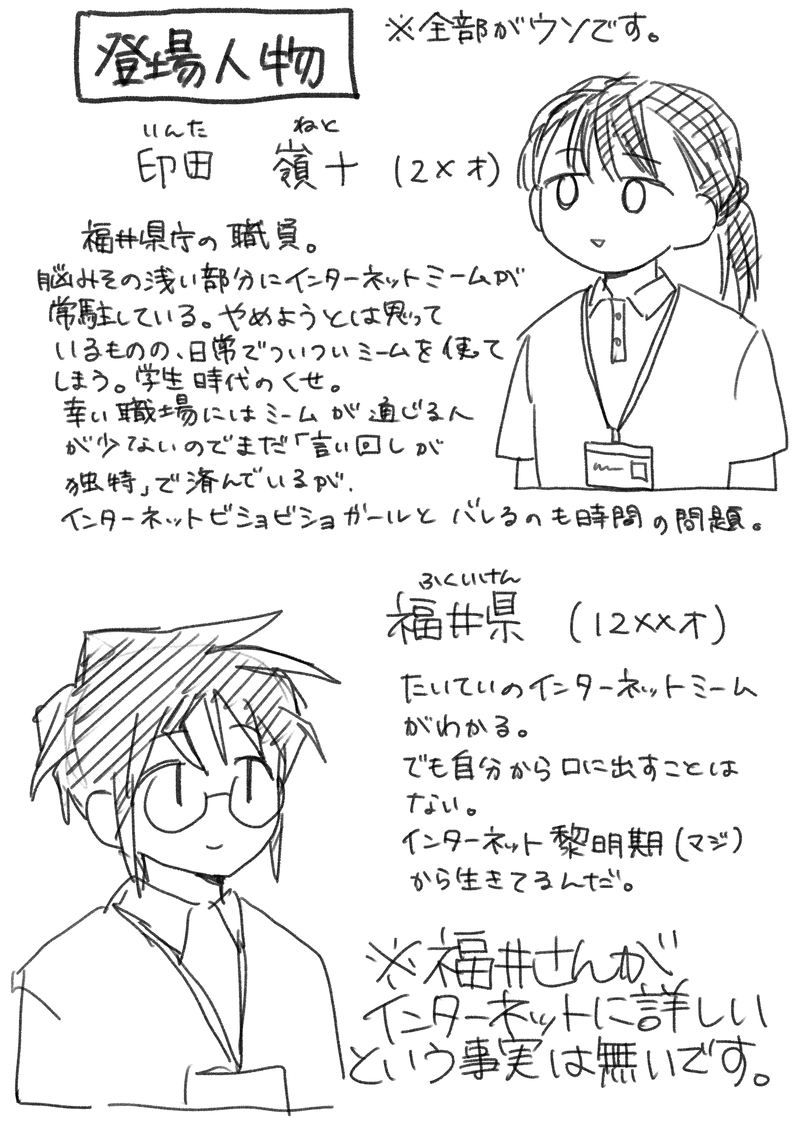 登場人物
※全部がウソです。
いんた ねと
印田 嶺十 (2×才)
福井県庁の職員。
脳みその浅い部分にインターネットミームが
常駐している。やめようとは思って
いるものの、日常でついついミームを使って
しまう。学生時代のくせ。
幸い職場にはミームが通じる人
が少ないのでまだ「言い回しが
独特」で済んでいるが、
インターネットビショビショガールとバレるのも時間の問題。
ふくいけん
福井県 (12××才)
たいていのインターネットミーム
がわかる。
でも自分から口に出すことは
ない。
インターネット黎明期(マジ)
から生きてるんだ。
※福井さんが
インターネットに詳しい
という事実は無いです。